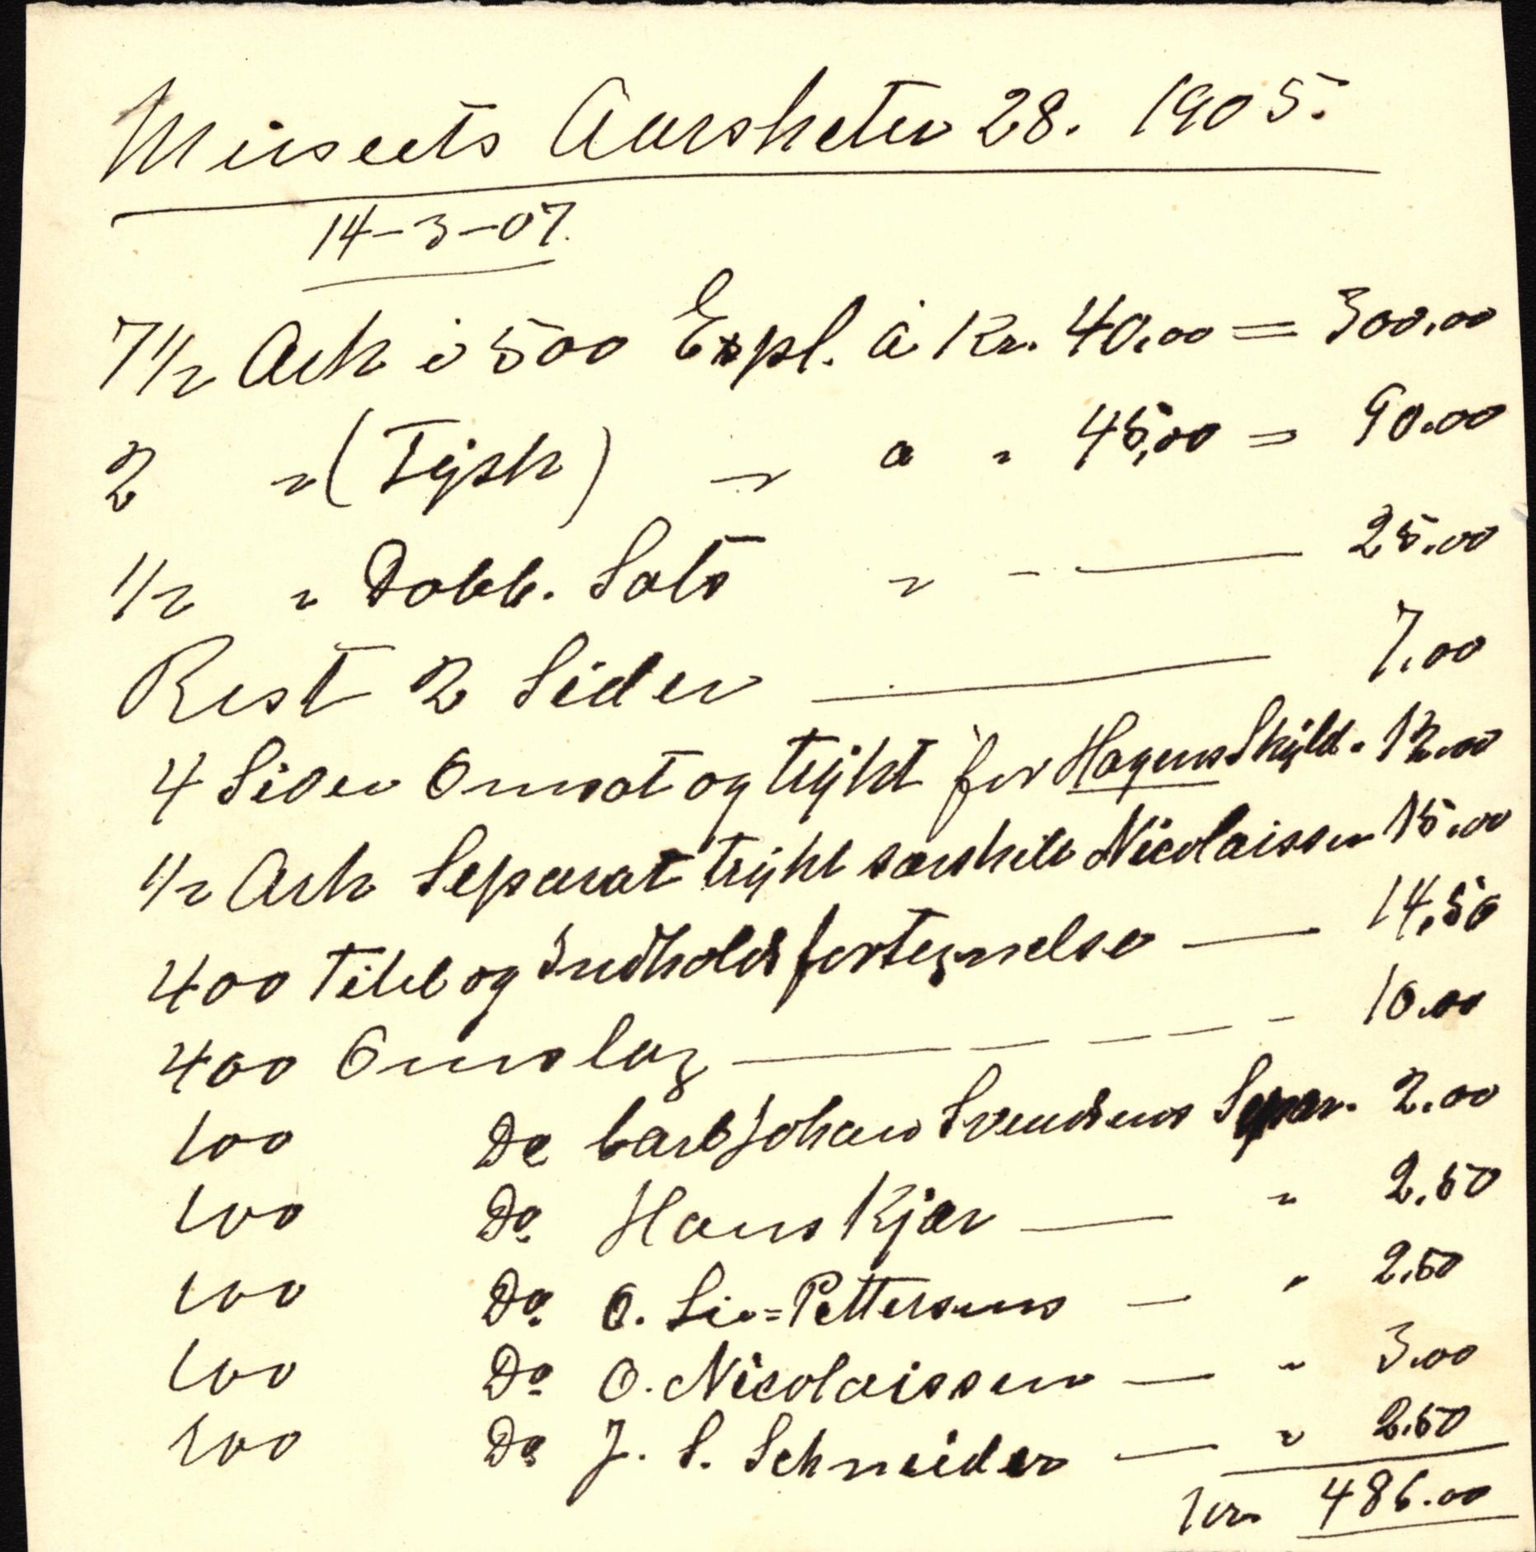 Museets Aarshefter 28. 1905.
14-3-07.
7 1/2 Ark i 500 Expl. à Kr. 40.00 = 300.00
2 " (Tysk) " a " 45,00 = 90.00
1/2 " Dobb. Sats " - — 25.00
Rest 2 Sider — 7.00
4 Sider Omsat og trykt for Hagens Skyld. 12.00
1/2 Ark Separat trykt særskilt Nicolaissen 15.00
400 Titel og Indholdsfortegnelse — 14,50
400 Omslag — — — — 10.00
100 Do Carl Johan Svendsens Separ. 2.00
100 Do Hans Kjær — " 2.50
100 Do O. Lie=Pettersens — " 2.50
100 Do O. Nicolaissen — " 3.00
100 Do J. S. Schneider — " 2.50
Kr. 486.00